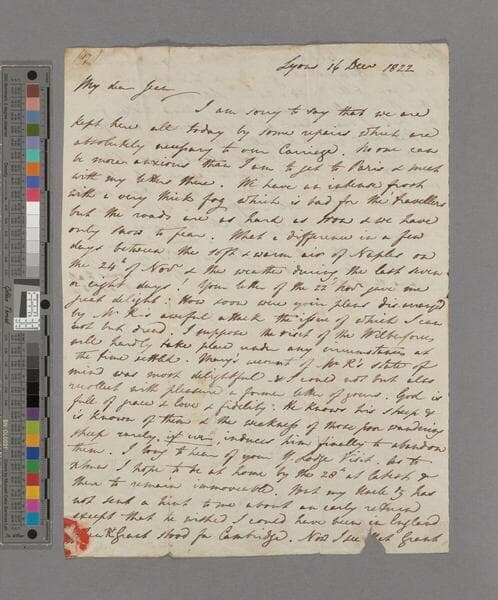 Lyons 16 Decr 1822
My dear Jean
I am sorry to say that we are
kept here all today by some repairs which are
absolutely necessary to our Carriage. No one can
be more anxious than I am to get to Paris & meet
with my letters there. We have an intense frost
with a very thick fog which is bad for the travellers
but the roads are as hard as Iron & we have
only snow to fear. What a difference in a few
days between the soft & warm air of Naples on
the 24th of Novr & the weather during the last seven
or eight days! Your letter of the 22d Novr gave me
great delight. How soon were your plans disarrang'd
by Mr R's awful attack the issue of which I can
not but dread. I suppose the visit of the Wilberforces
will hardly take place under any circumstances at
the time settled. account of Mr R's state of
mind was most delightful & I could not but also
recollect with pleasure a former letter of yours. God is
full of grace & love & fidelity. He knows his sheep &
is known of them & the weakness of those poor wandering
sheep rarely, if ever, induces him finally to abandon
them. I long to hear of your Lodge Visit. As to
plans I hope to be at home by the 28th at latest &
then to remain immoveable. But my Uncle has
not sent a hint to me about an early return
except that he wished I could have been in England
when R Grant stood for Cambridge. Now I see that Grant